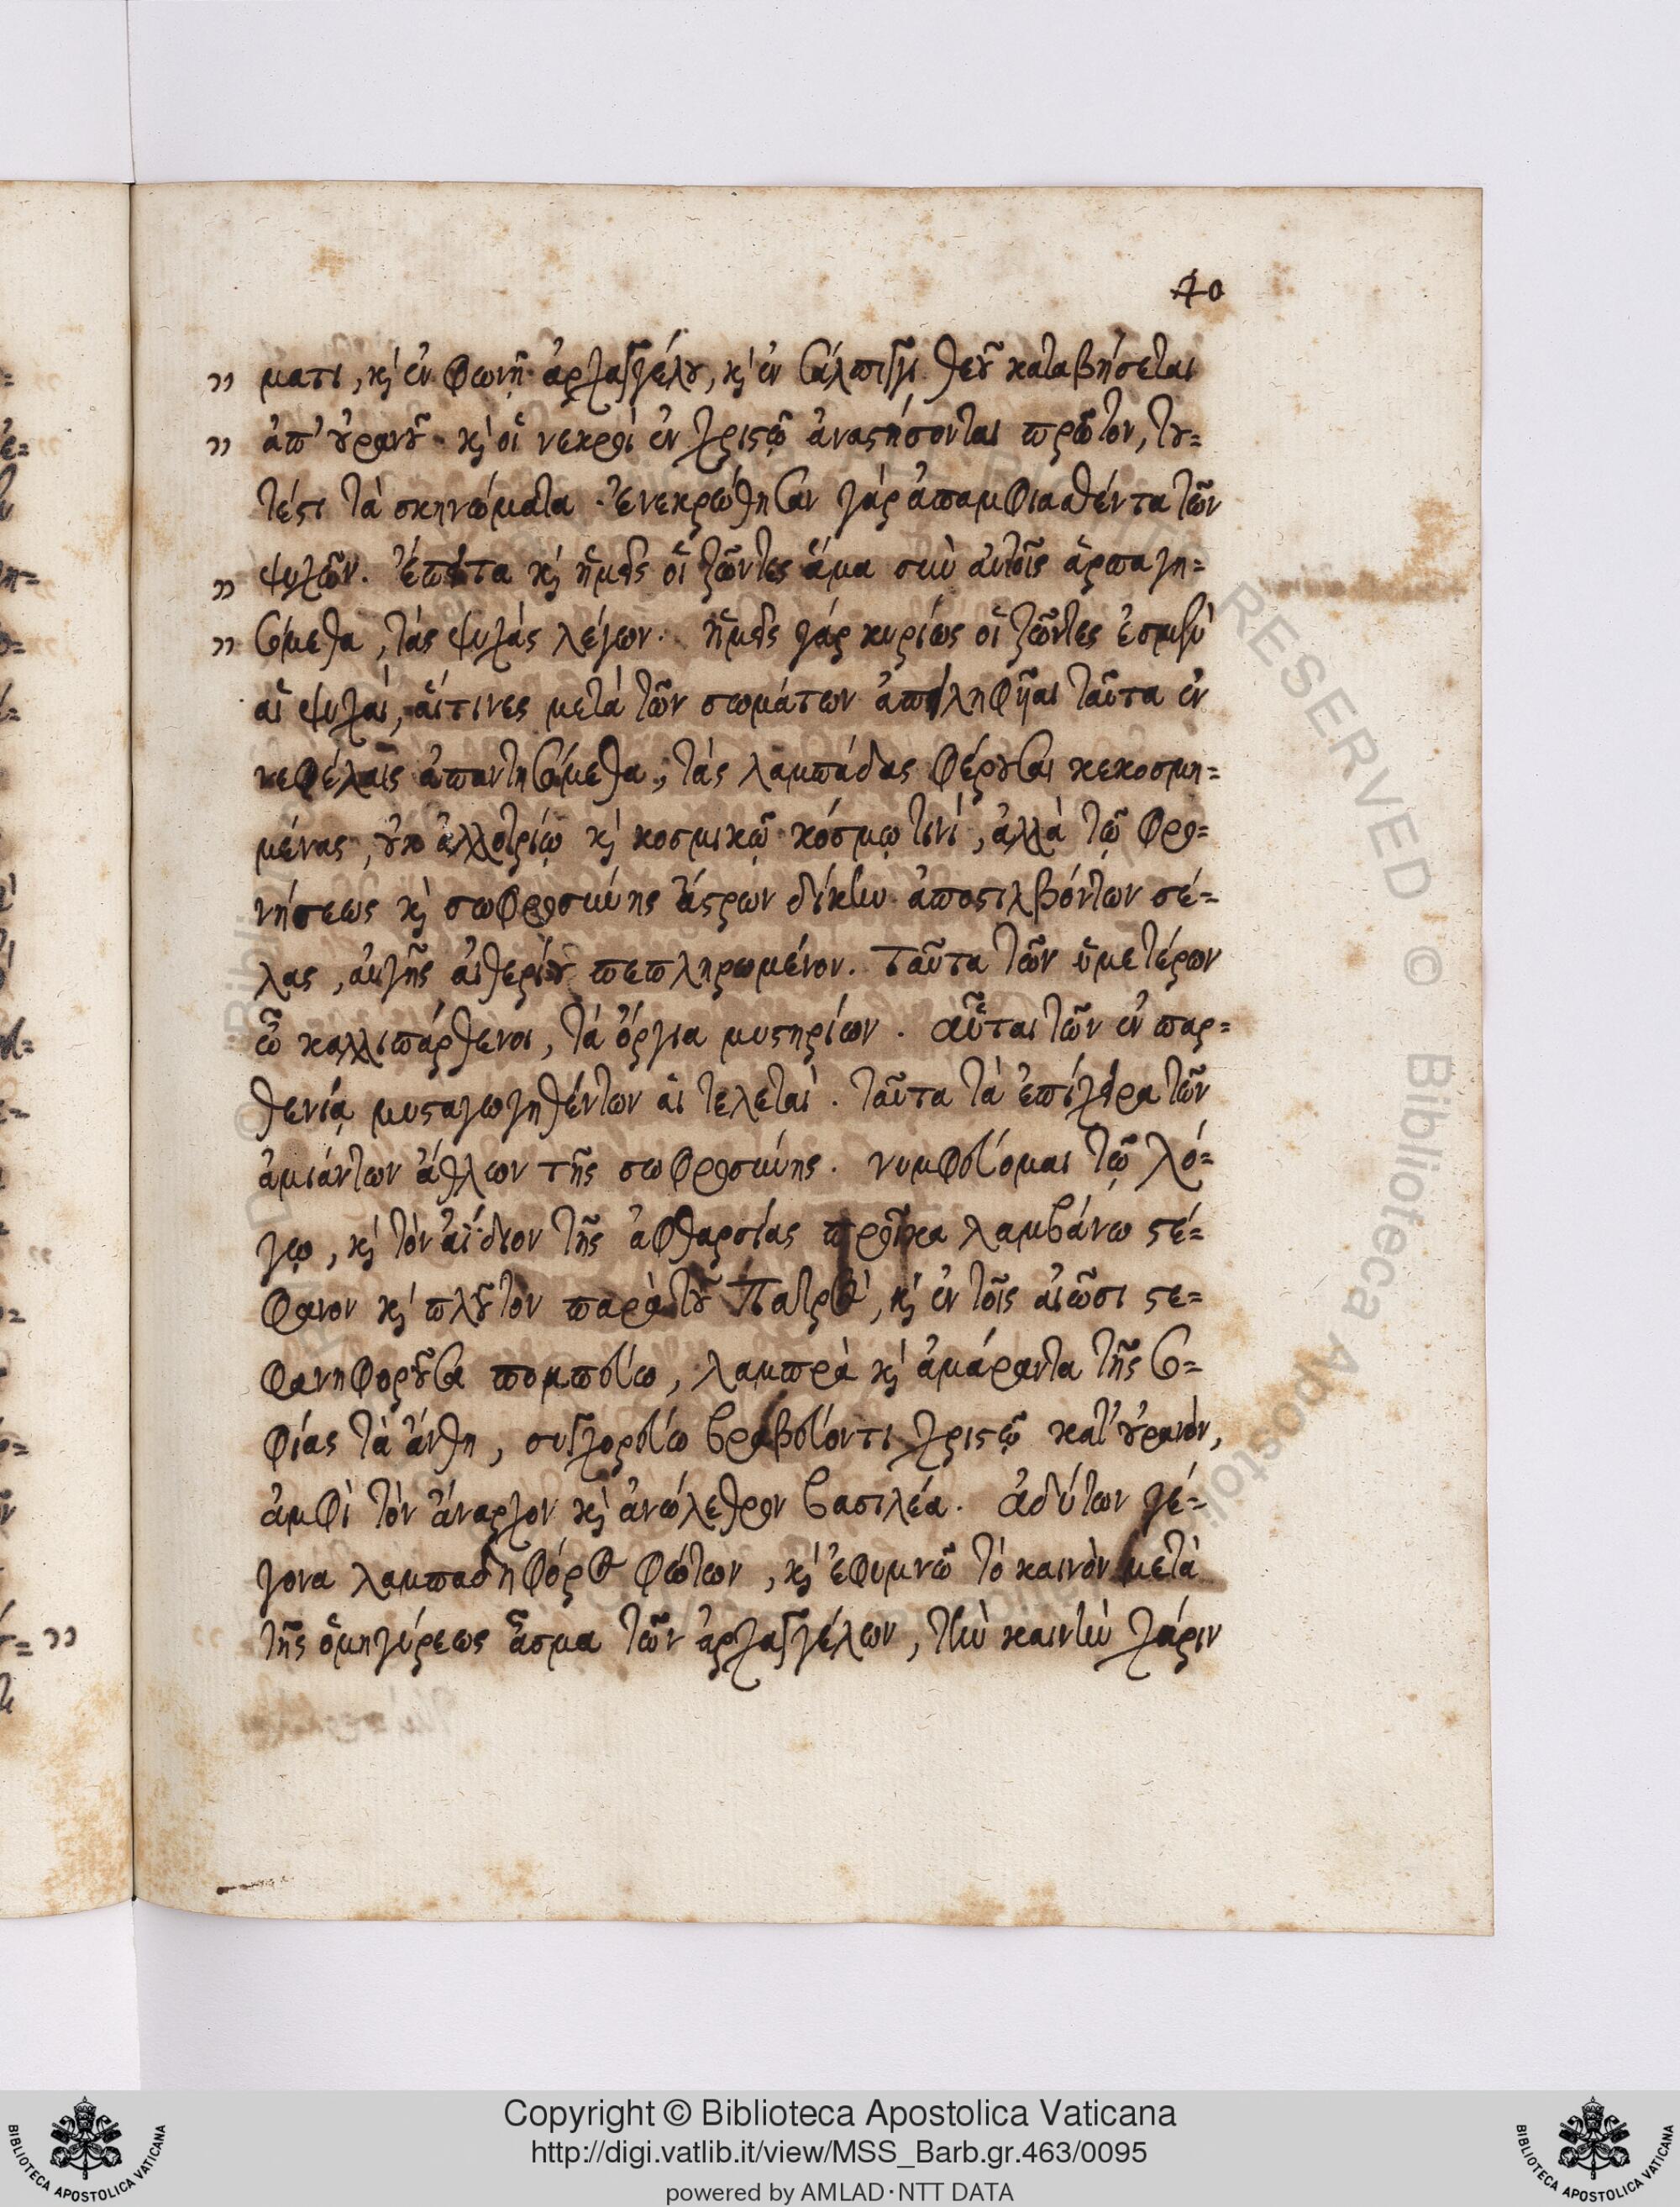 40
„ ματι, κ̀ ἐν φωνῇ ἀρχαγγέλȣ, κ̀ ἐν σάλπιγγι θεȣ͂ καταβήσεται
„ ἀπ' ȣ̓ρανȣ͂· κ̀ οἱ νεκροὶ ἐν χριϛῷ ἀναϛήσονται πρῶτον, τȣ=
τέϛι τὰ σκηνώματα· ἐνεκρώθησαν γὰρ ἀπαμφιασθέντα τῶν
„ ψυχῶν. ἔπειτα κ̀ ἡμεῖς οἱ ζῶντες ἅμα σὺν αὐτοῖς ἁρπαγη=
„ σόμεθα, τὰς ψυχὰς λέγων. ἡμεῖς γὰρ κυρίως οἱ ζῶντες ἐσμὲν
αἱ ψυχαί, αἵτινες μετὰ τῶν σωμάτων ἀποληφῆσαι ταῦτα ἐν
νεφέλαις ἀπαντησόμεθα, τὰς λαμπάδας φέρȣσαι κεκοσμη=
μένας, ȣ̓κ ἀλλοτρίῳ κ̀ κοσμικῷ κόσμῳ τινί, ἀλλὰ τῷ φρο=
νήσεως κ̀ σωφροσύνης ἄϛρων δίκην ἀποϛιλβόντων σέ=
λας, αὐγῆς αἰθερίȣ πεπληρωμένον. ταῦτα τῶν ὑμετέρων
ὦ καλλιπάρθενοι, τὰ ὄργια μυϛηρίων. αὗται τῶν ἐν παρ=
θενίᾳ μυϛαγωγηθέντων αἱ τελεταί. ταῦτα τὰ ἐπίχειρα τῶν
ἀμιάντων ἄθλων τῆς σωφροσύνης. νυμφεύομαι τῷ λό=
γῳ, κ̀ τὸν ἀΐδιον τῆς ἀφθαρσίας προῖκα λαμβάνω ϛέ=
φανον κ̀ πλȣ͂τον παρὰ τȣ͂ Πατρὸς, κ̀ ἐν τοῖς αἰῶσι ϛε=
φανηφορȣ͂σα πομπεύω, λαμπρὰ κ̀ ἀμάραντα τῆς σο=
φίας τὰ ἄνθη, συγχορεύω βραβεύοντι χριϛῷ κατ' ȣ̓ρανὸν,
ἀμφὶ τὸν ἄναρχον κ̀ ἀνώλεθρον βασιλέα. ἀδύτων γέ=
γονα λαμπαδηφόρος φώτων, κ̀ ἐφυμνῶ τὸ καινὸν μετὰ
τῆς ὁμηγύρεως ᾆσμα τῶν ἀρχαγγέλων, τὴν καινὴν χάριν
Copyright © Biblioteca Apostolica Vaticana
http://digi.vatlib.it/view/MSS_Barb.gr.463/0095
powered by AMLAD·NTT DATA
BIBLIOTECA APOSTOLICA VATICANA
BIBLIOTECA APOSTOLICA VATICANA